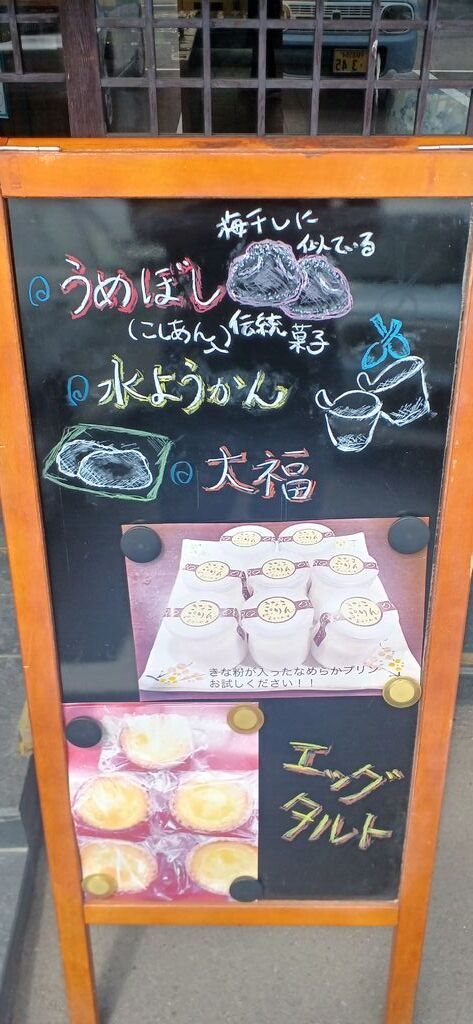 梅干しに
似ている
うめぼし
(こしあん入)伝統菓子
水ようかん
大福
きな粉が入ったなめらかプリン
お試しください!!
エッグ
タルト